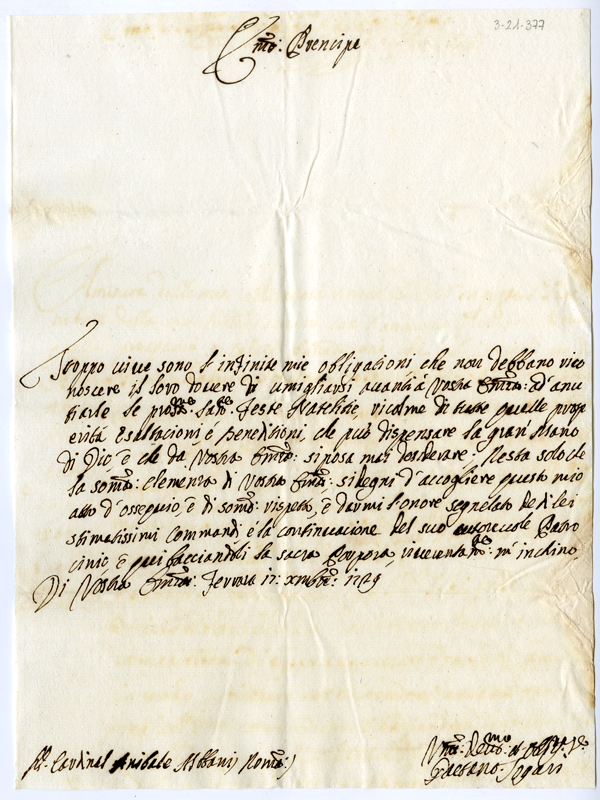 3-21-377
Emo: Prencipe
Troppo vive sono l'infinite mie obligationi che non debbano rico
noscere il loro dovere di umigliarsi avanti à Vostra Emza: d'anu
tiarle le prosme: sate: Feste Natalitie, ricolme di tutte quelle prosp
erità esaltacioni é Beneditioni, che può dispensare la gran' Mano
di Dio, è che da Vostra Emza: si posa mai desiderare. Resta solo che
la soma: clemenza di Vostra Emza: si degni d'accogliere questo mio
atto d'ossequio, è di somo: rispetto, è darmi l'onore segnelato de di lei
stimatissimi Commandi è la continuacione del suo autorevole Patro
cinio, è quì bacciandoli la sacra Porpora, riverentate: m'inchino
Di Vostra Emza: Ferrara 17: xmbre: 1729
Sr. Cardinal Anibale Albani Roma:)
Umo: Devmo: et Obmo: Sre
Gaetano